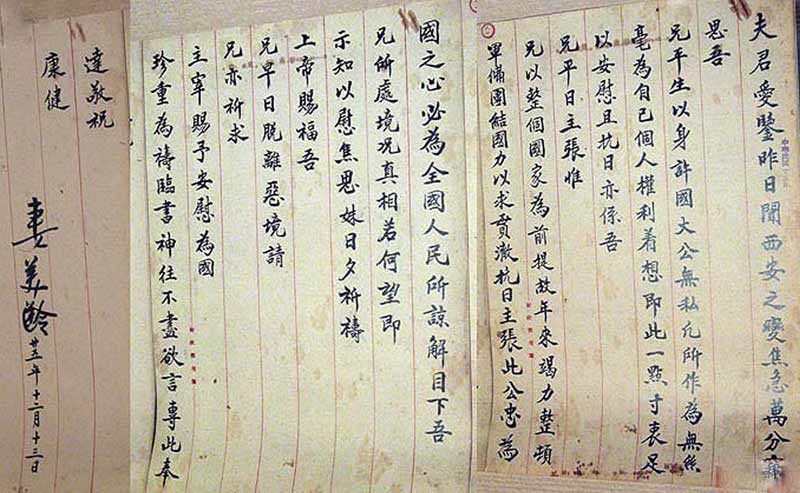 夫君愛鑒昨日聞西安之變焦急萬分竊
思吾
兄平生以身許國大公無私凡所作為無絲
毫為自己個人權利着想即此一點寸衷足
以安慰且抗日亦係吾
兄平日主張惟
兄以整個國家為前提故年來竭力整頓
軍備團結國力以求貫澈抗日主張此公忠為
國之心必為全國人民所諒解目下吾
兄所處境況真相若何望即
示知以慰焦思妹日夕祈禱
上帝賜福吾
兄早日脫離惡境請
兄亦祈求
主宰賜予安慰為國
珍重為禱臨書神往不盡欲言專此奉
達敬祝
康健
妻美齡廿五年十二月十三日